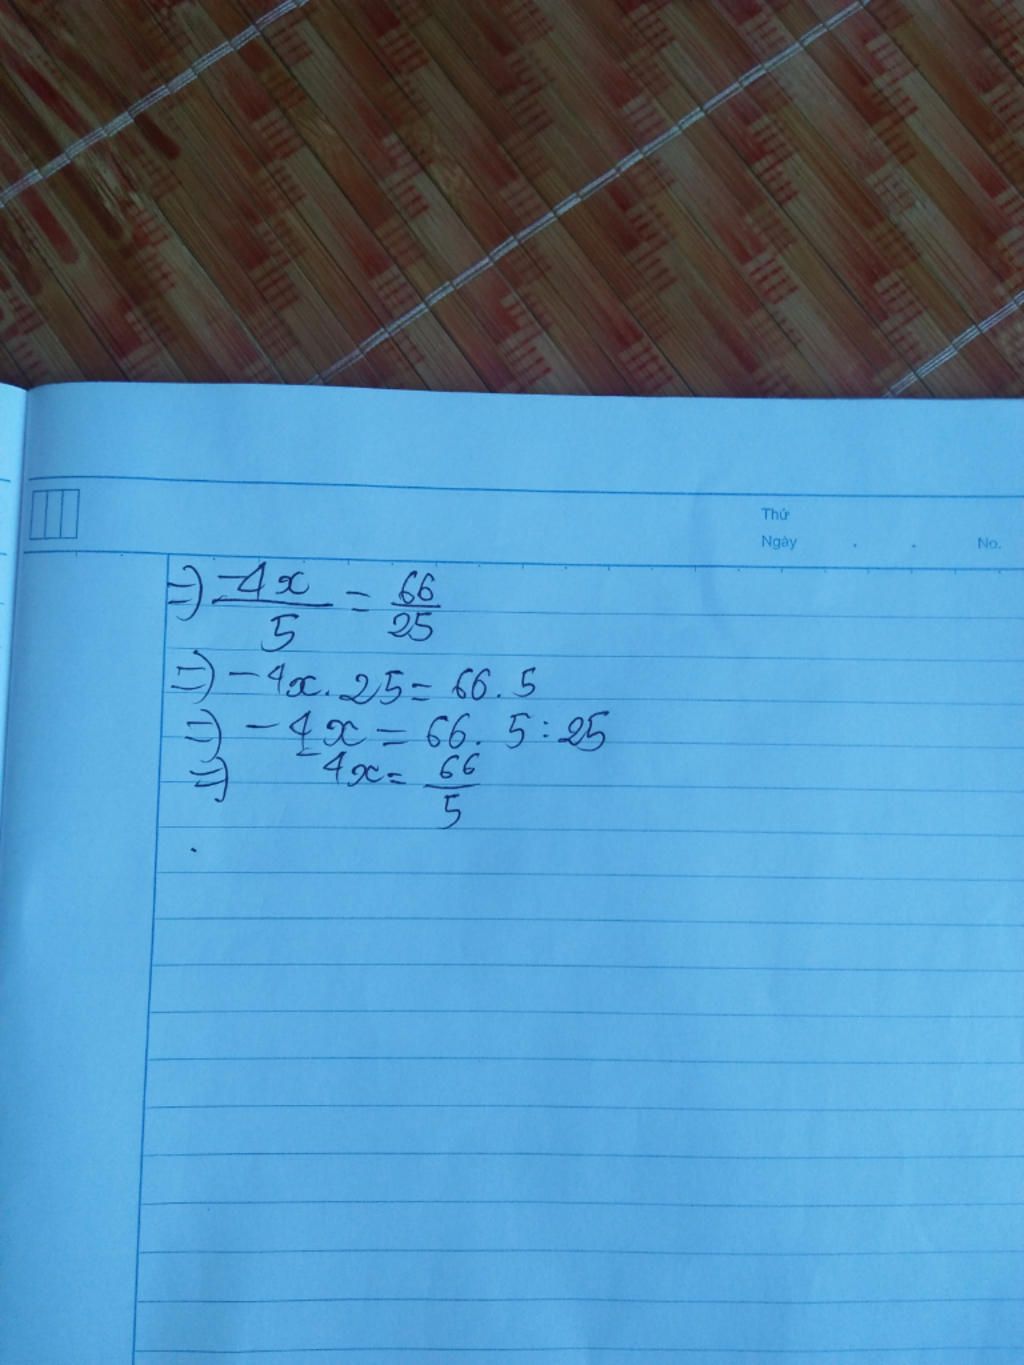 Thứ
Ngày . . No.
=) -4x/5 = 66/25
=) -4x. 25 = 66. 5
=) -4x = 66. 5 : 25
=) -4x = 66/5
.